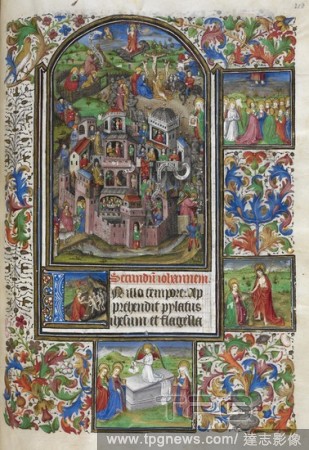 Secundū iohannem
IN illo tempore Ap
prehendit pylatus
ihesum et flagella
www.tpgnews.com/ 達志影像